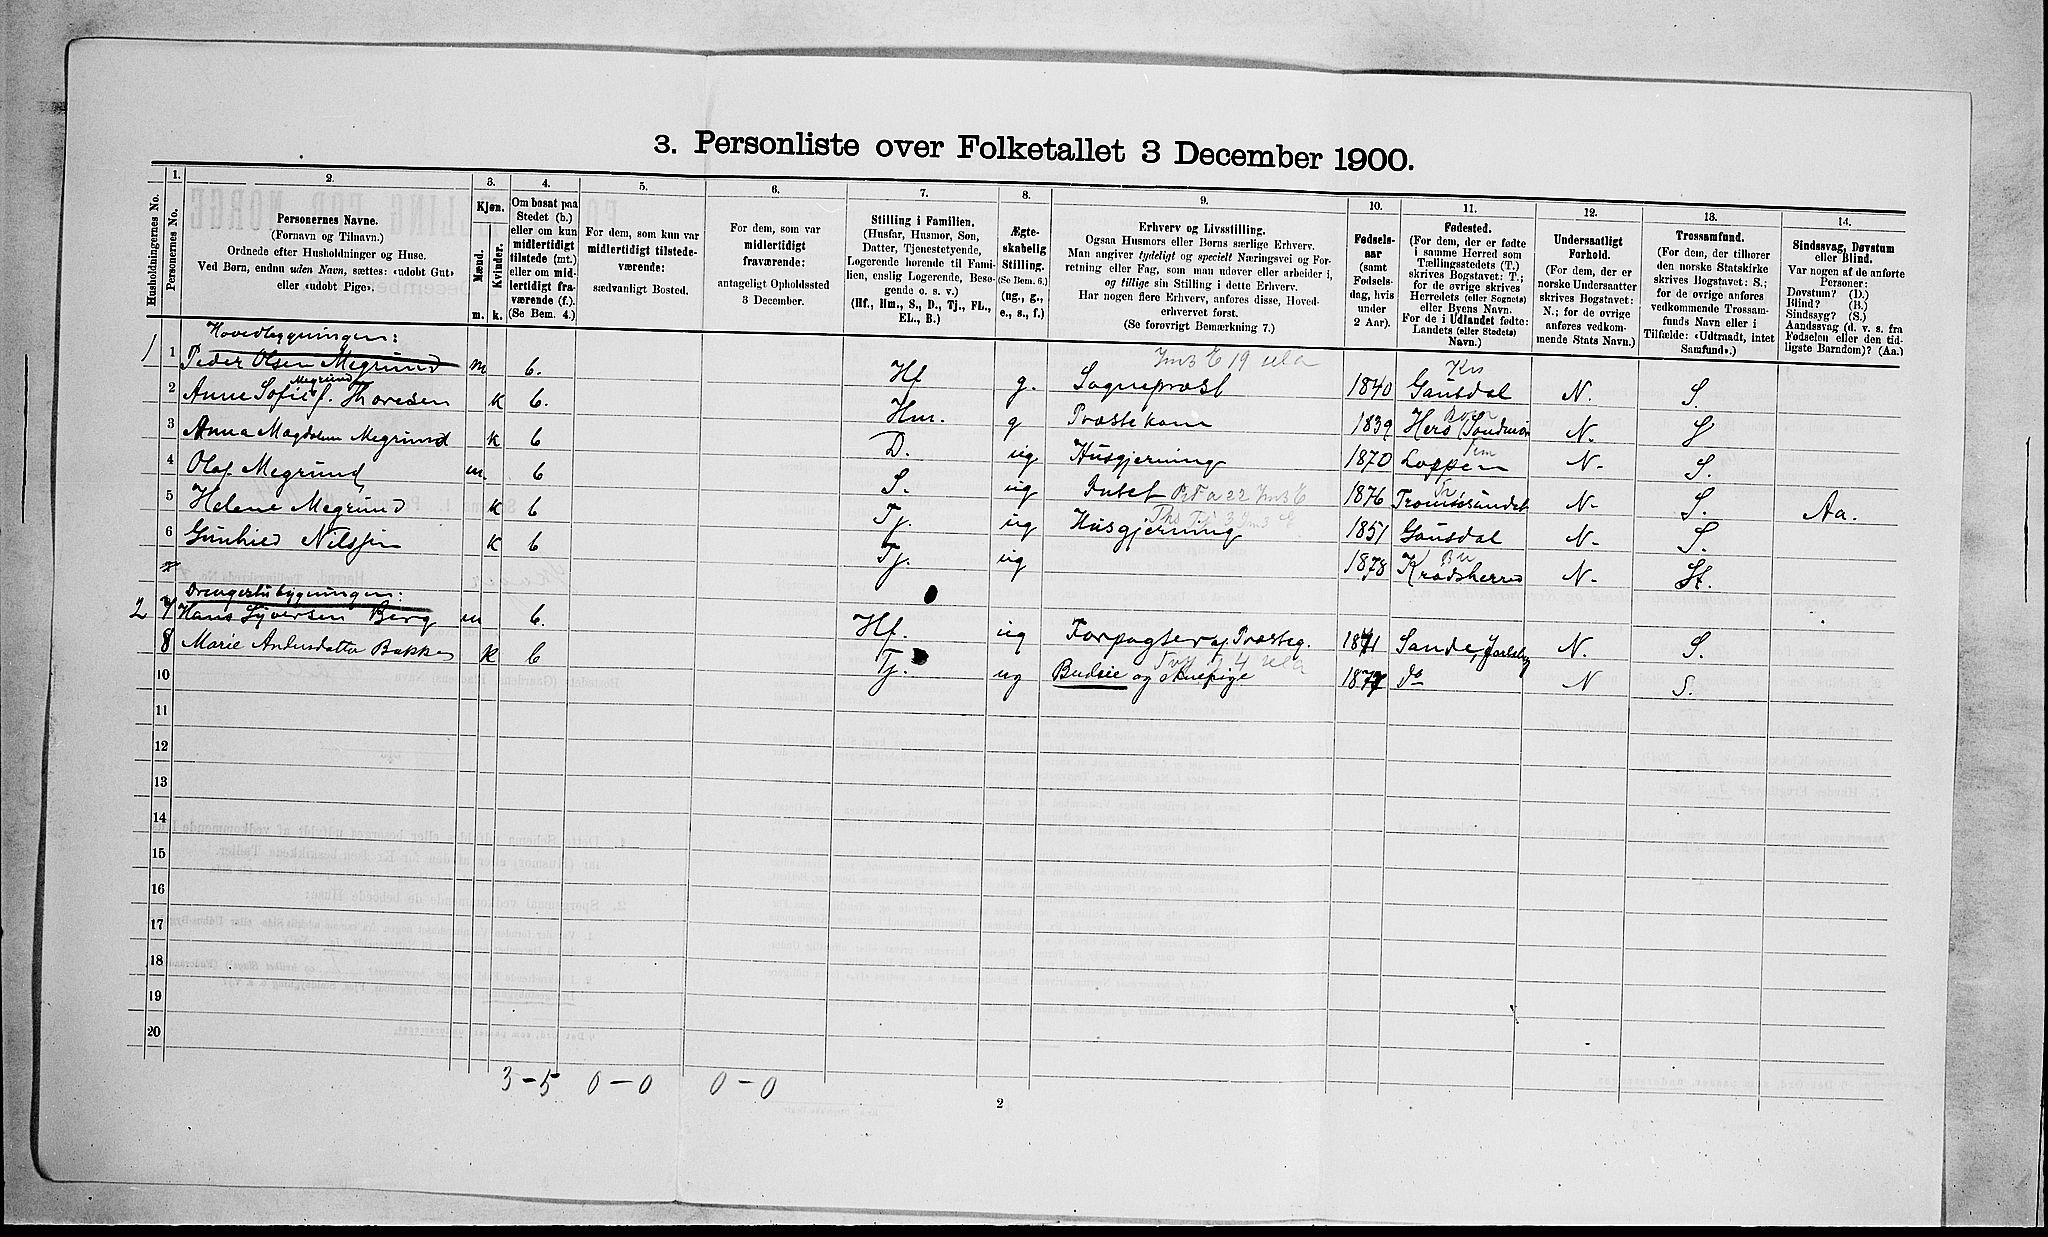 3. Personliste over Folketallet 3 December 1900.
Husholdningernes No.
1.
Personernes No.
2.
Personernes Navne.
(Fornavn og Tilnavn.)
Ordnede efter Husholdninger og Huse.
Ved Børn, endnu uden Navn, sættes: «udobt Gut»
eller «udobt Pige».
3.
Kjøn.
Mænd.
Kvinder.
m. k.
4.
Om bosat paa
Stedet (b.)
eller om kun
midlertidigt
tilstede (mt.)
eller om mid-
lertidigt fra-
værende (f.).
(Se Bem. 4.)
5.
For dem, som kun var
midlertidigt tilstede-
værende:
sædvanligt Bosted.
6.
For dem, som var
midlertidigt
fraværende:
antageligt Opholdssted
3 December.
7.
Stilling i Familien.
(Husfar, Husmor, Søn,
Datter, Tjenestetyende,
Logerende hørende til Fami-
lien, enslig Logerende, Besø-
gende o. s. v.)
(Hf., Hm., S., D., Tj., FL.,
EL., B.)
8.
Ægte-
skabelig
Stilling.
(Se Bem. 6.)
(ug., g.,
e., s., f.)
9.
Erhverv og Livsstilling.
Ogsaa Husmors eller Børns særlige Erhverv.
Man angiver tydeligt og specielt Næringsvei og For-
retning eller Fag, som man udøver eller arbeider i,
og tillige sin Stilling i dette Erhverv.
Har nogen flere Erhverv, anføres disse, Hoved-
erhvervet først.
(Se forøvrigt Bemærkning 7.)
10.
Fødsels-
aar
(samt
Fødsels-
dag, hvis
under
2 Aar).
11.
Fødested.
(For dem, der er fødte
i samme Herred som
Tællingsstedets (T.)
skrives Bogstavet: T.;
for de øvrige skrives
Herredets (eller Sognets)
eller Byens Navn.
For de i Udlandet fødte:
Landets (eller Stedets)
Navn.)
12.
Undersaatligt
Forhold.
(For dem, der er
norske Undersaatter
skrives Bogstavet:
N.; for de øvrige
anføres vedkom-
mende Stats Navn.)
13.
Trossamfund.
(For dem, der tilhører
den norske Statskirke
skrives Bogstavet: S.;
for de øvrige anføres
vedkommende Trossam-
funds Navn eller i
Tilfælde: «Udtraadt, intet
Samfund».)
14.
Sindssvag, Døvstum
eller Blind.
Var nogen af de anførte
Personer:
Døvstum? (D.)
Blind? (B.)
Sindssyg? (S.)
Aandssvag (d. v. s. fra
Fødselen eller den tid-
ligste Barndom)? (Aa.)
Hovedbygningen:
1 1 Peder Olsen Megrund m b. Hf g. Sogneprest 1840 Gausdal N. S.
2 Anne Sofie Megrund f. Thoresen k b. Hm. g Præstekone 1839 Herø Søndmør N. S
3 Anna Magdalene Megrund k b D. ug Husgjerning 1870 Loppen N. S.
4 Olaf Megrund m. b S. ug Intet 1876 Tromsøsundet N. S. Aa.
5 Helene Megrund k b Tj. ug Husgjerning 1851 Gausdal N. S.
6 Gunhild Nilssen k b Tj. ug 1878 Krødsherred N. St.
Drengestubygningen:
2 7 Hans Syversen Berg m b. Hf. ug Forpagter af Præsteg. 1871 Sande, Jarlsberg N. S.
8 Marie Andersdatter Bakke k b Tj. ug Budeie og Stuepige 1877 do N S.
10
11
12
13
14
15
16
17
18
19
20
3 - 5 0 - 0 0 - 0
2